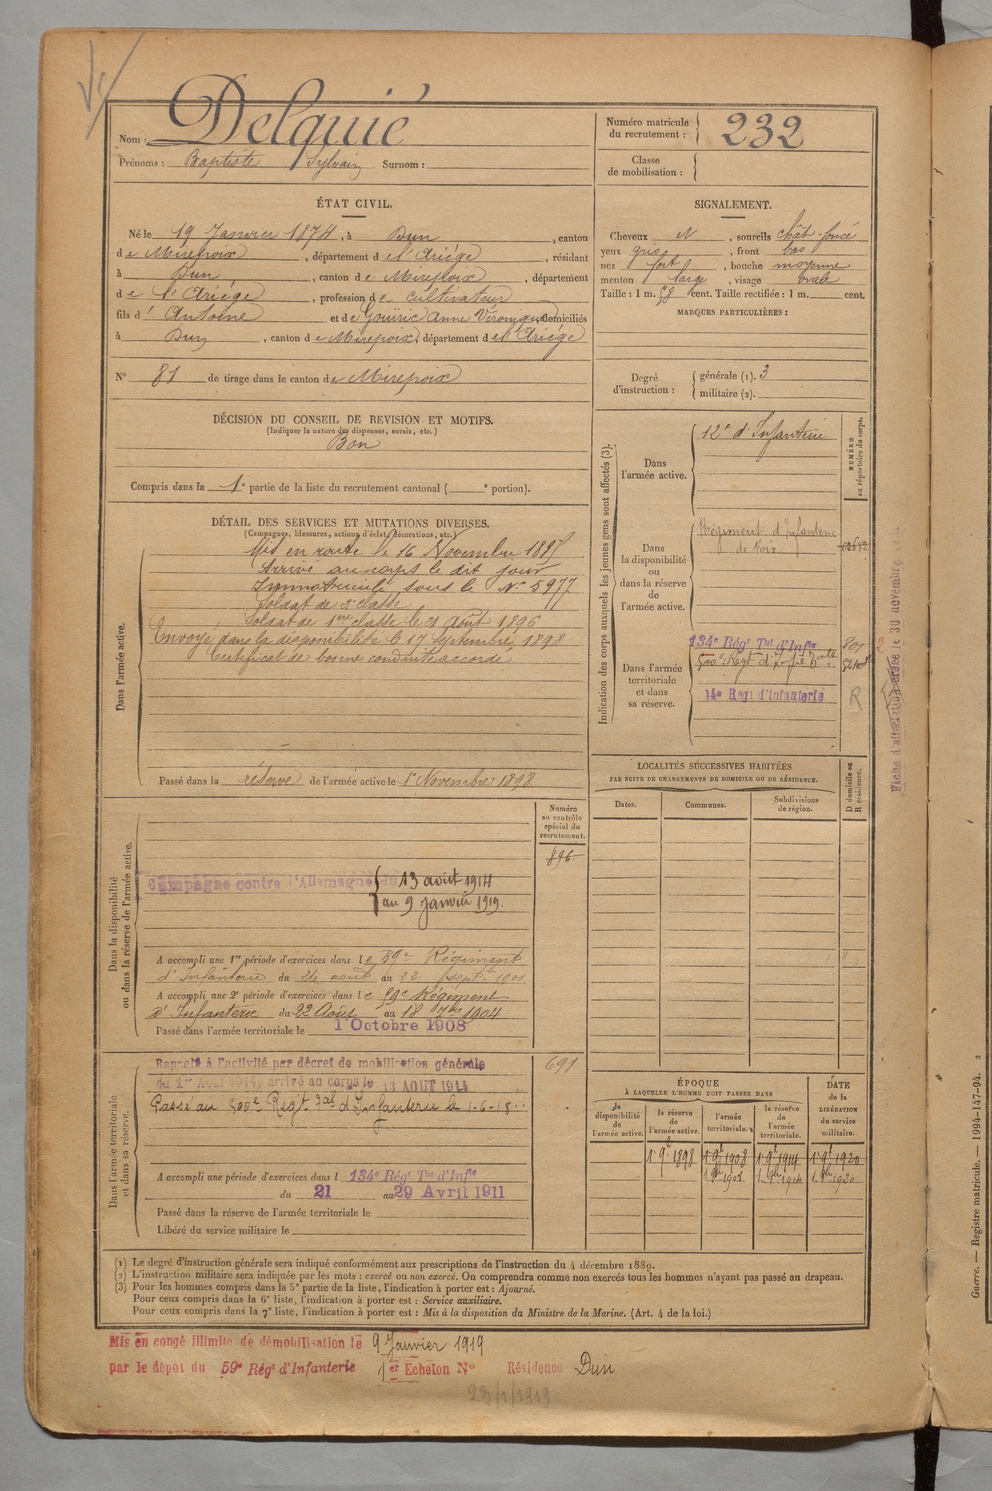 Delquié
Nom :
Prénoms : Baptiste Sylvain Surnom :
Numéro matricule
du recrutement : 232
Classe
de mobilisation :
ÉTAT CIVIL.
Né le 19 Janvier 1874, à Dun, canton
de Mirepoix, département de l'Ariége, résidant
à Dun, canton de Mirepoix, département
de l'Ariége, profession de cultivateur
fils d' Antoine et de Gouiric Anne Véronique, domiciliés
à Dun, canton de Mirepoix, département de l'Ariége
N° 81 de tirage dans le canton de Mirepoix
DÉCISION DU CONSEIL DE REVISION ET MOTIFS.
(Indiquer la nature des dispenses, sursis, etc.)
Bon
Compris dans la 1e partie de la liste du recrutement cantonal ( e portion).
SIGNALEMENT.
Cheveux N, sourcils chât-foncé
yeux gris, front bas
nez fort, bouche moyenne
menton large, visage ovale
Taille : 1 m. 58 cent. Taille rectifiée : 1 m. cent.
MARQUES PARTICULIÈRES :
Degré
d'instruction :
générale (1). 3
militaire (2).
DÉTAIL DES SERVICES ET MUTATIONS DIVERSES.
(Campagnes, blessures, actions d'éclat, décorations, etc.)
Dans l'armée active.
Mis en route le 16 Novembre 1895
Arrivé au corps le dit jour
Immatriculé sous le N° 5977
Soldat de 2e classe
Soldat de 1ere classe le 21 Août 1896
Envoyé dans la disponibilité le 17 septembre 1898
Certificat de bonne conduite accordé
Passé dans la réserve de l'armée active le 1er Novembre 1898
Indication des corps auxquels les jeunes gens sont affectés (3).
NUMÉRO
au répertoire du corps.
Dans
l'armée active.
12e d'Infanterie
Dans
la disponibilité
ou
dans la réserve
de
l'armée active.
Régiment d'Infanterie
de Foix
Dans l'armée
territoriale
et dans
sa réserve.
134e Régt Tal d'Infie
500e Régt d'Infie
14e Regt d'Infanterie
R
Fiche d'affectation
le 30 novembre
LOCALITÉS SUCCESSIVES HABITÉES
PAR SUITE DE CHANGEMENTS DE DOMICILE OU DE RÉSIDENCE.
Dates. Communes. Subdivisions
de région.
D domicile ou
R résidence.
Dans la disponibilité
ou dans la réserve de l'armée active.
Numéro
au contrôle
spécial du
recrutement.
896
Campagne contre l'Allemagne du 13 août 1914
au 9 janvier 1919.
A accompli une 1re période d'exercices dans le 59e Régiment
d'Infanterie du 26 août au 22 Septbre 1901
A accompli une 2e période d'exercices dans le 59e Régiment
d'Infanterie du 22 Août au 18 7bre 1904
Passé dans l'armée territoriale le 1 Octobre 1908
Dans l'armée territoriale
et dans sa réserve.
691
Rappelé à l'activité par décret de mobilisation générale
du 1er Août 1914, arrivé au corps le 13 AOUT 1914
Passé au 500e Regt Tal d'Infanterie le 1-6-18
A accompli une période d'exercices dans l 134e Régt Tal d'Infie
du 21 au 29 Avril 1911
Passé dans la réserve de l'armée territoriale le
Libéré du service militaire le
ÉPOQUE
À LAQUELLE L'HOMME DOIT PASSER DANS
la
disponibilité
de
l'armée active.
la réserve
de
l'armée active.
l'armée
territoriale.
la réserve
de
l'armée
territoriale.
DATE
de la
LIBÉRATION
du service
militaire.
1 9bre 1898 1 9bre 1908 1 9bre 1914 1 9bre 1920
(1) Le degré d'instruction générale sera indiqué conformément aux prescriptions de l'instruction du 4 décembre 1889.
(2) L'instruction militaire sera indiquée par les mots : exercé ou non exercé. On comprendra comme non exercés tous les hommes n'ayant pas passé au drapeau.
(3) Pour les hommes compris dans la 5e partie de la liste, l'indication à porter est : Ajourné.
Pour ceux compris dans la 6e liste, l'indication à porter est : Service auxiliaire.
Pour ceux compris dans la 7e liste, l'indication à porter est : Mis à la disposition du Ministre de la Marine. (Art. 4 de la loi.)
Mis en congé illimité de démobilisation le 9 Janvier 1919
par le dépôt du 59e Régt d'Infanterie 1er Echelon N° Résidence Dun
23/1/1919
Guerre. — Registre matricule. — 1994-147-94. 2